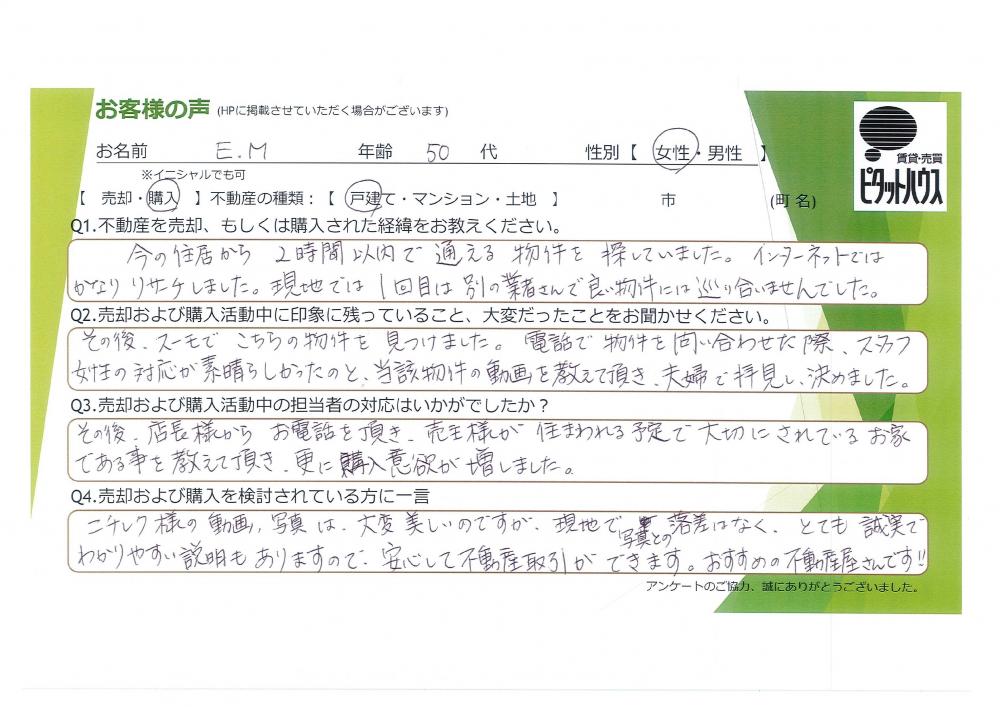 お客様の声 (HPに掲載させていただく場合がございます)
賃貸・売買
ピタットハウス
お名前 E.M 年齢 50 代 性別【 女性・男性 】
※イニシャルでも可
【 売却・購入 】不動産の種類：【 戸建て・マンション・土地 】 市 (町名)
Q1.不動産を売却、もしくは購入された経緯をお教えください。
今の住居から 2時間以内で通える物件を探していました。インターネットでは
かなりリサーチしました。現地では1回目は別の業者さんで良い物件には巡り合いませんでした。
Q2.売却および購入活動中に印象に残っていること、大変だったことをお聞かせください。
その後、スーモでこちらの物件を見つけました。電話で物件を問い合わせた際、スタフ
女性の対応が素晴らしかったのと、当該物件の動画を教えて頂き、夫婦で拝見し、決めました。
Q3.売却および購入活動中の担当者の対応はいかがでしたか？
その後、店長様からお電話を頂き、売主様が住まわれる予定で大切にされているお家
である事を教えて頂き、更に購入意欲が増しました。
Q4.売却および購入を検討されている方に一言
ニチレク様の動画、写真は、大変美しいのですが、現地で写真との落差はなく、とても誠実で
わかりやすい説明もありますので、安心して不動産取引ができます。おすすめの不動産屋さんです!!
アンケートのご協力、誠にありがとうございました。